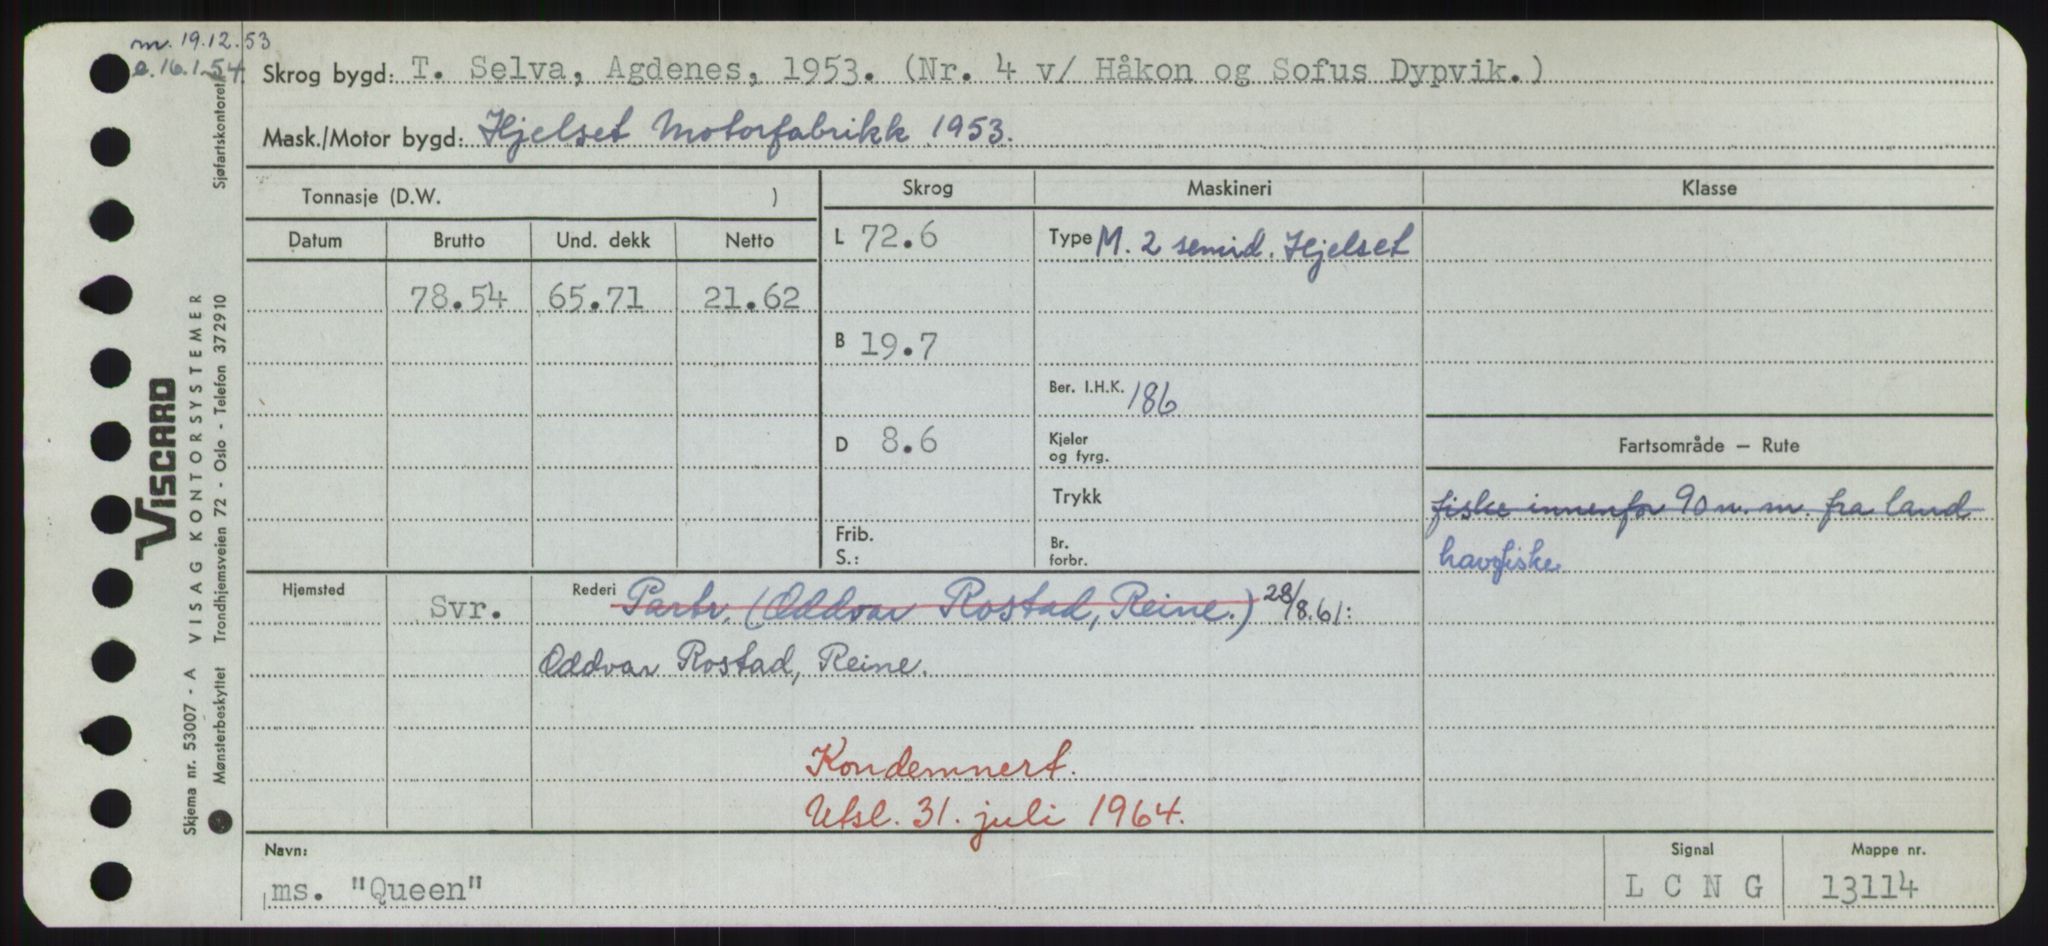 m. 19.12.53
e. 16.1.54
Skrog bygd: T. Selva, Agdenes, 1953. (Nr. 4 v/ Håkon og Sofus Dypvik.)
Mask./Motor bygd: Hjelset Motorfabrikk 1953.
Tonnasje (D.W. )
Skrog
Maskineri
Klasse
Datum Brutto Und. dekk Netto
L 72.6
Type M. 2 semid. Hjelset
78.54 65.71 21.62
B 19.7
Ber. I.H.K. 186
D 8.6
Kjeler
og fyrg.
Trykk
Frib.
S.:
Br.
forbr.
Fartsområde — Rute
fiske innenfor 90 n. m. fra land
havfiske
Hjemsted Svr.
Rederi Partr. (Oddvar Rostad, Reine.) 28/8.61:
Oddvar Rostad, Reine.
Kondemnert.
Utsl. 31. juli 1964.
Navn:
ms. "Queen"
Signal
L C N G
Mappe nr.
13114
Skjema nr. 53007 - A VISAG KONTORSYSTEMER
VISCARD
Mønsterbeskyttet Trondhjemsveien 72 - Oslo - Telefon 372910 Sjøfartskontoret